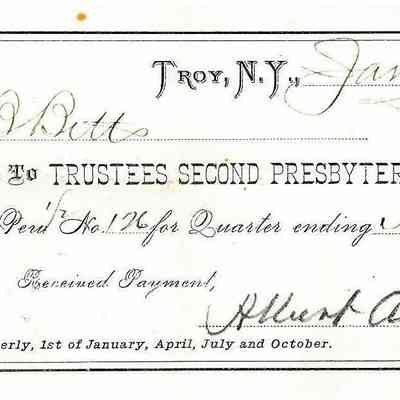 TROY, N.Y., Jan
Betts
To TRUSTEES SECOND PRESBYTER
No. 126 for Quarter ending
Received Payment,
Albert A
erly, 1st of January, April, July and October.